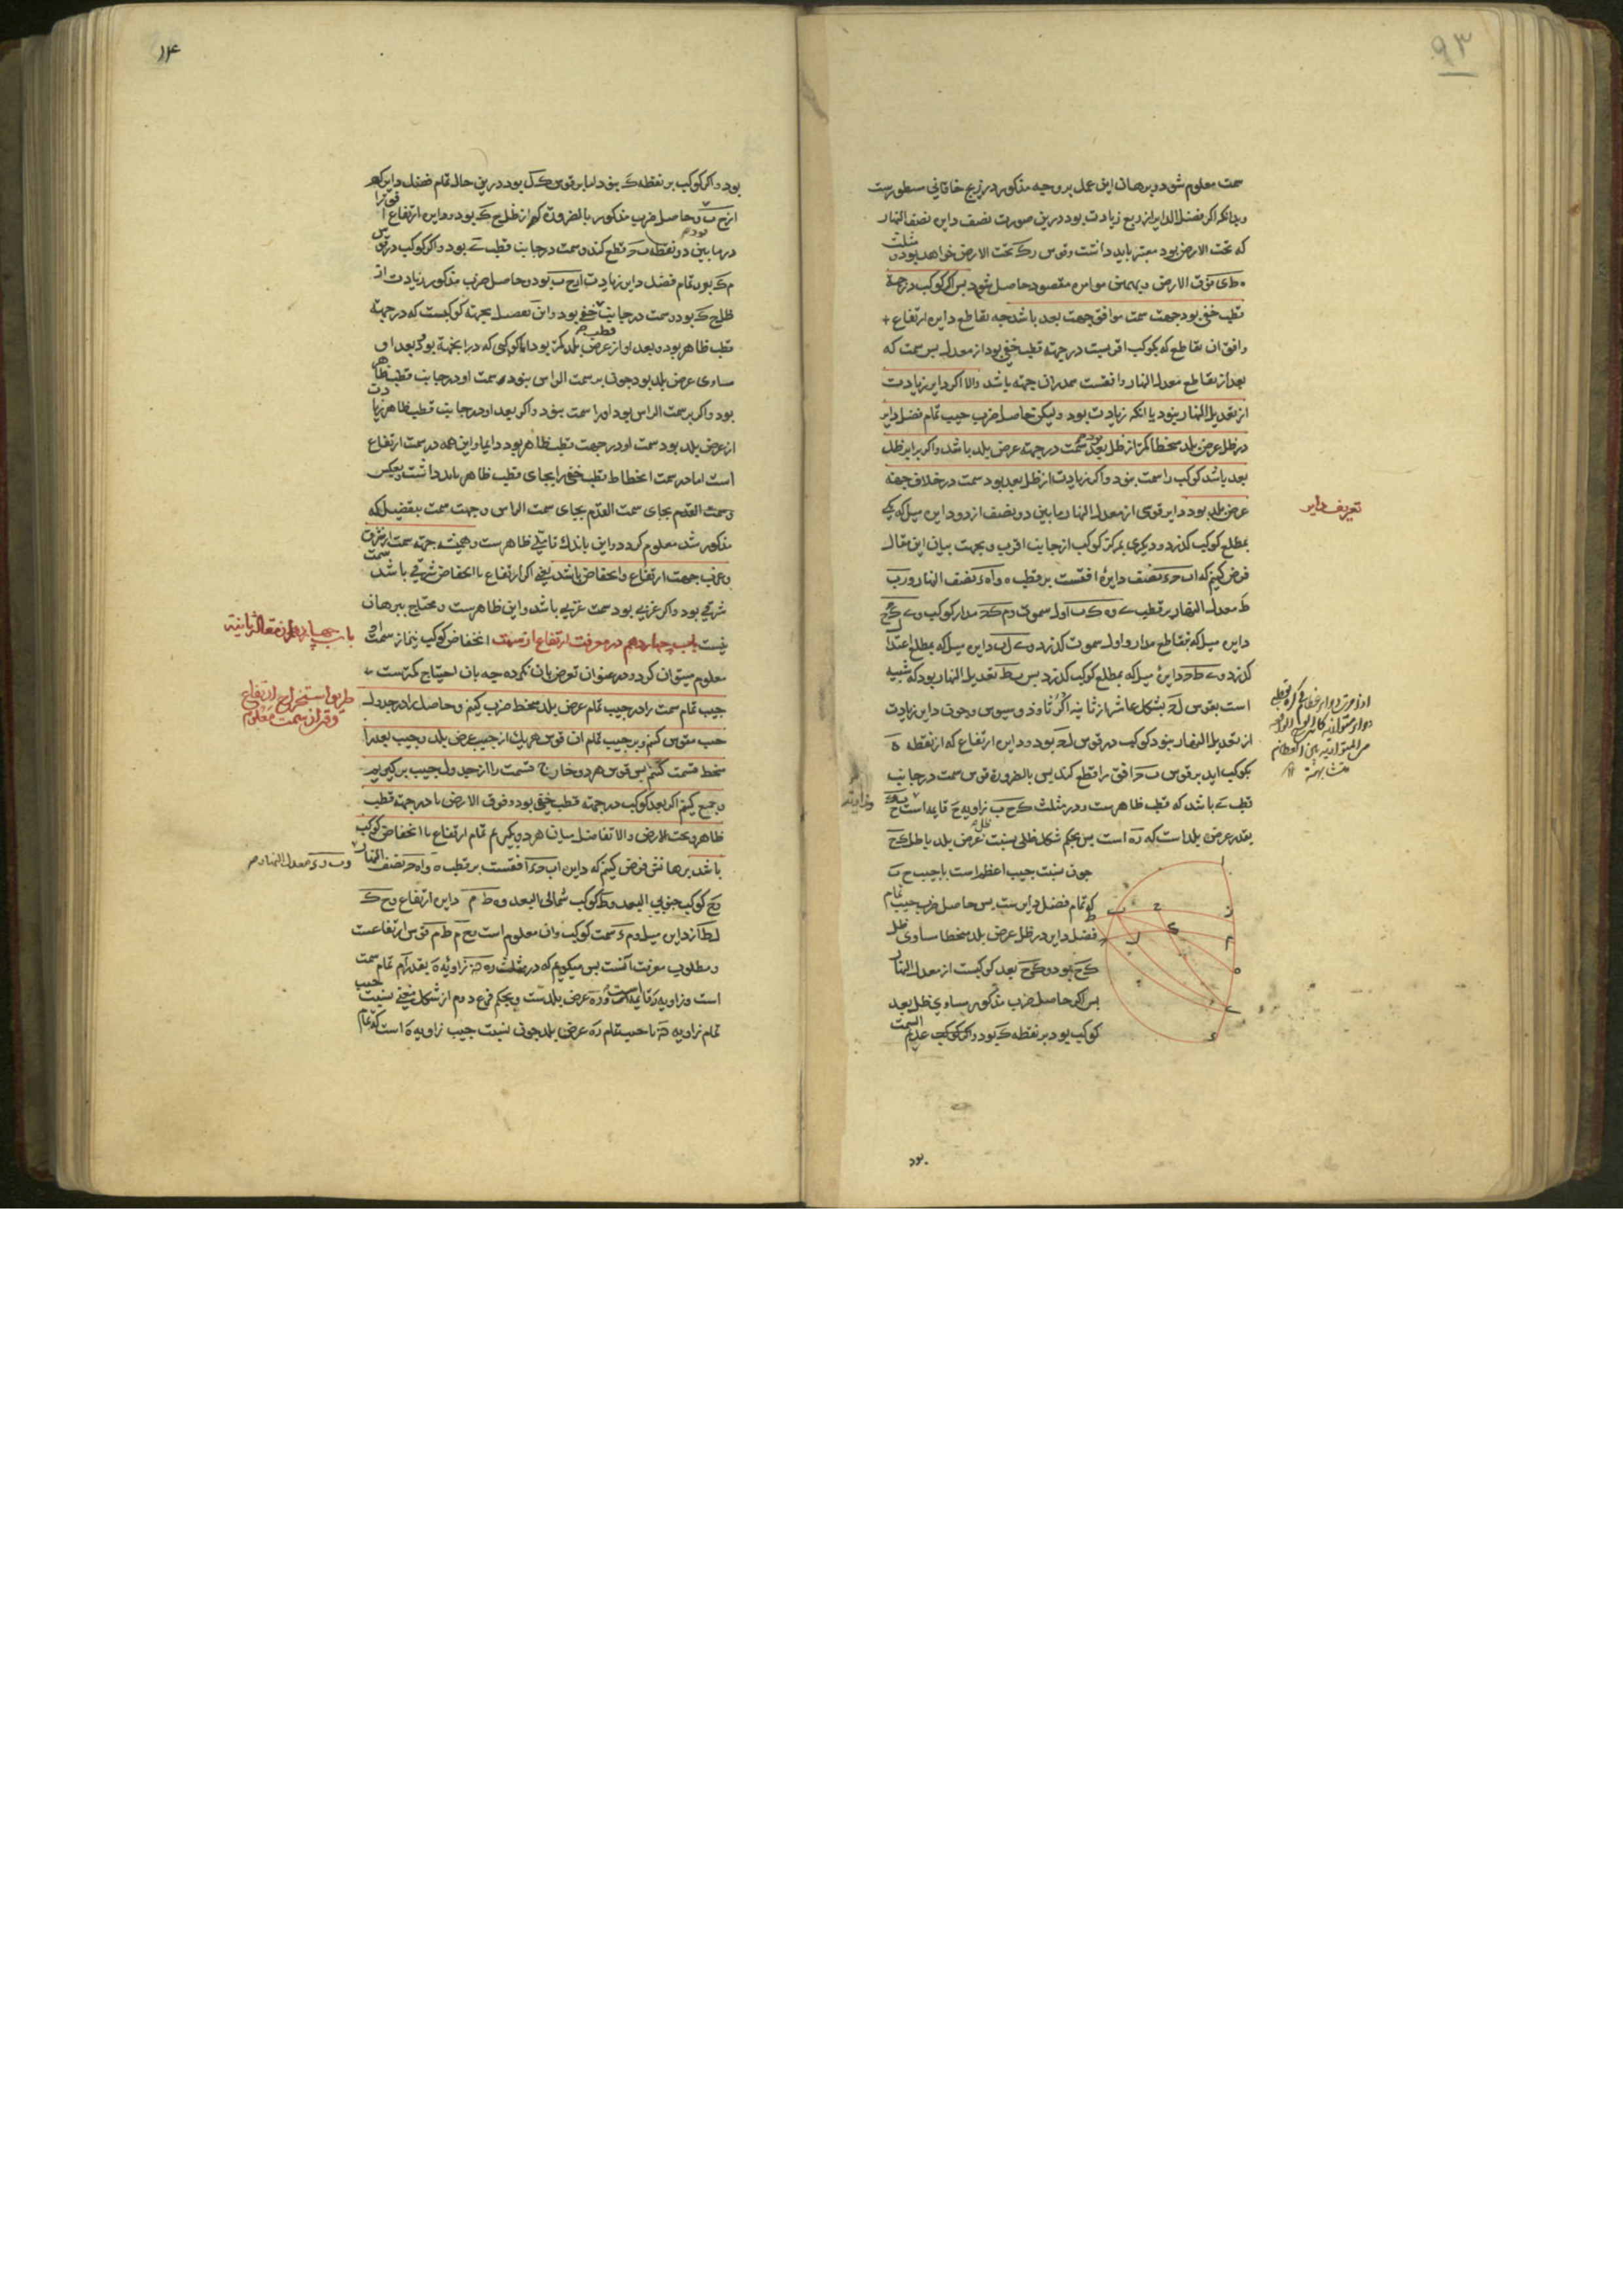 ۹۳
سمت معلوم شود و برهان این عمل بر وجه مذکور در زیج خاقانی مسطورست
و بدانکه اگر فضل الدایر از ربع زیادت بود درین صورت نصف دایره نصف النهار
که تحت الارض بود معتبر باید داشت و قوس تحت الارض خواهد بود و مثلث
فوق الارض و بهمین موامره مقصود حاصل شود پس اگر کوکب در جهة
قطب خفی بود جهت سمت موافق جهت بعد باشد چه تقاطع دایره ارتفاع
و افق ان تقاطع که بکوکب اقربست در جهة قطب خفی بود از معدل پس سمت که
بعد از تقاطع معدل النهار و افقست هم در ان جهة باشد والا اگر دایر زیادت
از تعدیل النهار بود یا انکه زیادت بود ولیکن حاصل ضرب جیب تمام فضل دایر
در ظل عرض بلد منحطا کمتر از ظل بعد بود سمت در جهة عرض بلد باشد و اگر برابر ظل
بعد باشد کوکب را سمت نبود و اگر زیادت از ظل بعد بود سمت در خلاف جهة
عرض بلد بود و دایر قوسی از معدل النهار ما بین دو نصف از دو دایره میل که یکی
تعریف دایر
بمطلع کوکب گذرد و دیگری بمرکز کوکب از جانب اقرب و بجهت بیان این مقال
فرض کنیم که اب ح د نصف دایرهٔ افقست بر قطب ه و اه د نصف النهار و ر ب
ط معدل النهار بر قطب ی و ه ک ب اول سموت و م ک ح مدار کوکب و ی ک ح
دایره میل که بتقاطع مدار و اول سموت گذرد و ی ل ب دایره میل که بمطلع اعتدال
گذرد و ی ط ح دایرهٔ میل که بمطلع کوکب گذرد پس ب ط تعدیل النهار بود که شبیه
است بقوس ل ح بشکل عاشر از ثانیه اکر ثاوذوسیوس و چون دایر زیادت
از تعدیل النهار نبود کوکب در قوس ل ح بود و دایره ارتفاع که از نقطه ه
بکوکب اید بر قوس ب ح افق را قطع کند پس بالضرورة قوس سمت در جانب
قطب ی باشد که قطب ظاهرست و در مثلث ک ح ب زاویه ح قایمه است و ب
بقدر عرض بلد است که ر ه است پس بحکم شکل ظلی نسبت ظل عرض بلد با ظل ک ح
چون نسبت جیب اعظم است با جیب ح ب
که تمام فضل دایرست پس حاصل ضرب جیب تمام
فضل دایر در ظل عرض بلد منحطا مساوی ظل
ک ح بود و ک ح بعد کوکبست از معدل النهار
پس اگر حاصل ضرب مذکور مساوی ظل بعد
کوکب بود بر نقطه ک بود و کوکب عدیم السمت
بود
۹۴
بود و اگر کوکب بر نقطه ک نبود اما بر قوس ک ل بود درین حال تمام فضل دایر کمتر
از ح ب و حاصل ضرب مذکور بالضرورة کمتر از ظل ح ک بود و دایره ارتفاع افق را
در ما بین دو نقطه ب ح قطع کند و سمت در جانب قطب ی بود و اگر کوکب در قوس
م ک بود تمام فضل دایر زیادت از ح ب بود و حاصل ضرب مذکور زیادت از
ظل ح ک بود و سمت در جانب قطب خفی بود و این تفصیل بجهة کوکبیست که در جهة
قطب ظاهر بود و بعد او از عرض بلد کمتر بود اما کوکبی که در این جهة بود و بعد او
مساوی عرض بلد بود چون بر سمت الراس نبود سمت او در جانب قطب ظاهر
بود و اگر بر سمت الراس بود او را سمت نبود و اگر بعد او در جانب قطب ظاهر زیادت
از عرض بلد بود سمت او در جهت قطب ظاهر بود دایما و این همه در سمت ارتفاع
است اما در سمت انحطاط قطب خفی را بجای قطب ظاهر باید داشت و بعکس
و سمت القدم بجای سمت الراس و جهت سمت بتفصیل که
مذکور شد معلوم گردد و این باندک تاملی ظاهرست و همچنین جهة سمت از شرق
و غرب جهت ارتفاع و انخفاض باشد یعنی اگر ارتفاع یا انخفاض شرقی باشد سمت
شرقی بود و اگر غربی بود سمت غربی باشد و این ظاهرست و محتاج ببرهان
نیست باب چهاردهم در معرفت ارتفاع از سمت انخفاض کوکب نیز از سمت او
باب چهاردهم از مقاله ثانیه
معلوم میتوان کرد و در عنوان تعرض بان نکرده چه بان احتیاج کمترست
جیب تمام سمت را در جیب تمام عرض بلد منحط ضرب کنیم و حاصل را در جدول
طریق استخراج ارتفاع از سمت معلوم
جیب مقوس کنیم و بر جیب تمام ان قوس هر یک از جیب عرض بلد و جیب بعد را
منحط قسمت کنیم پس قوس هر دو خارج قسمت را از جدول جیب برگیریم
و جمع کنیم اگر بعد کوکب در جهة قطب خفی بود و فوق الارض یا در جهة قطب
ظاهر و تحت الارض والا تفاضل میان هر دو بگیریم تمام ارتفاع یا انخفاض کوکب
باشد برهانش فرض کنیم که دایره اب ح د افقست بر قطب ه و اه ح نصف النهار
و ب ر د معدل النهار
و ح کوکب جنوبی البعد و ط کوکب شمالی البعد و ه ط م دایره ارتفاع و ح ک
ل ط از دایره میل و م د سمت کوکب و ان معلوم است و ح م ط م قوس ارتفاعست
و مطلوب معرفت انست پس میگوییم که در مثلث ر ه ن زاویهٔ ه بقدر ام تمام سمت
است و زاویه ر قایمه است و ر ه عرض بلدست و بحکم فرع دوم از شکل مغنی نسبت جیب
تمام زاویه ن با جیب تمام ر ه عرض بلد چون نسبت جیب زاویه ه است که تمام